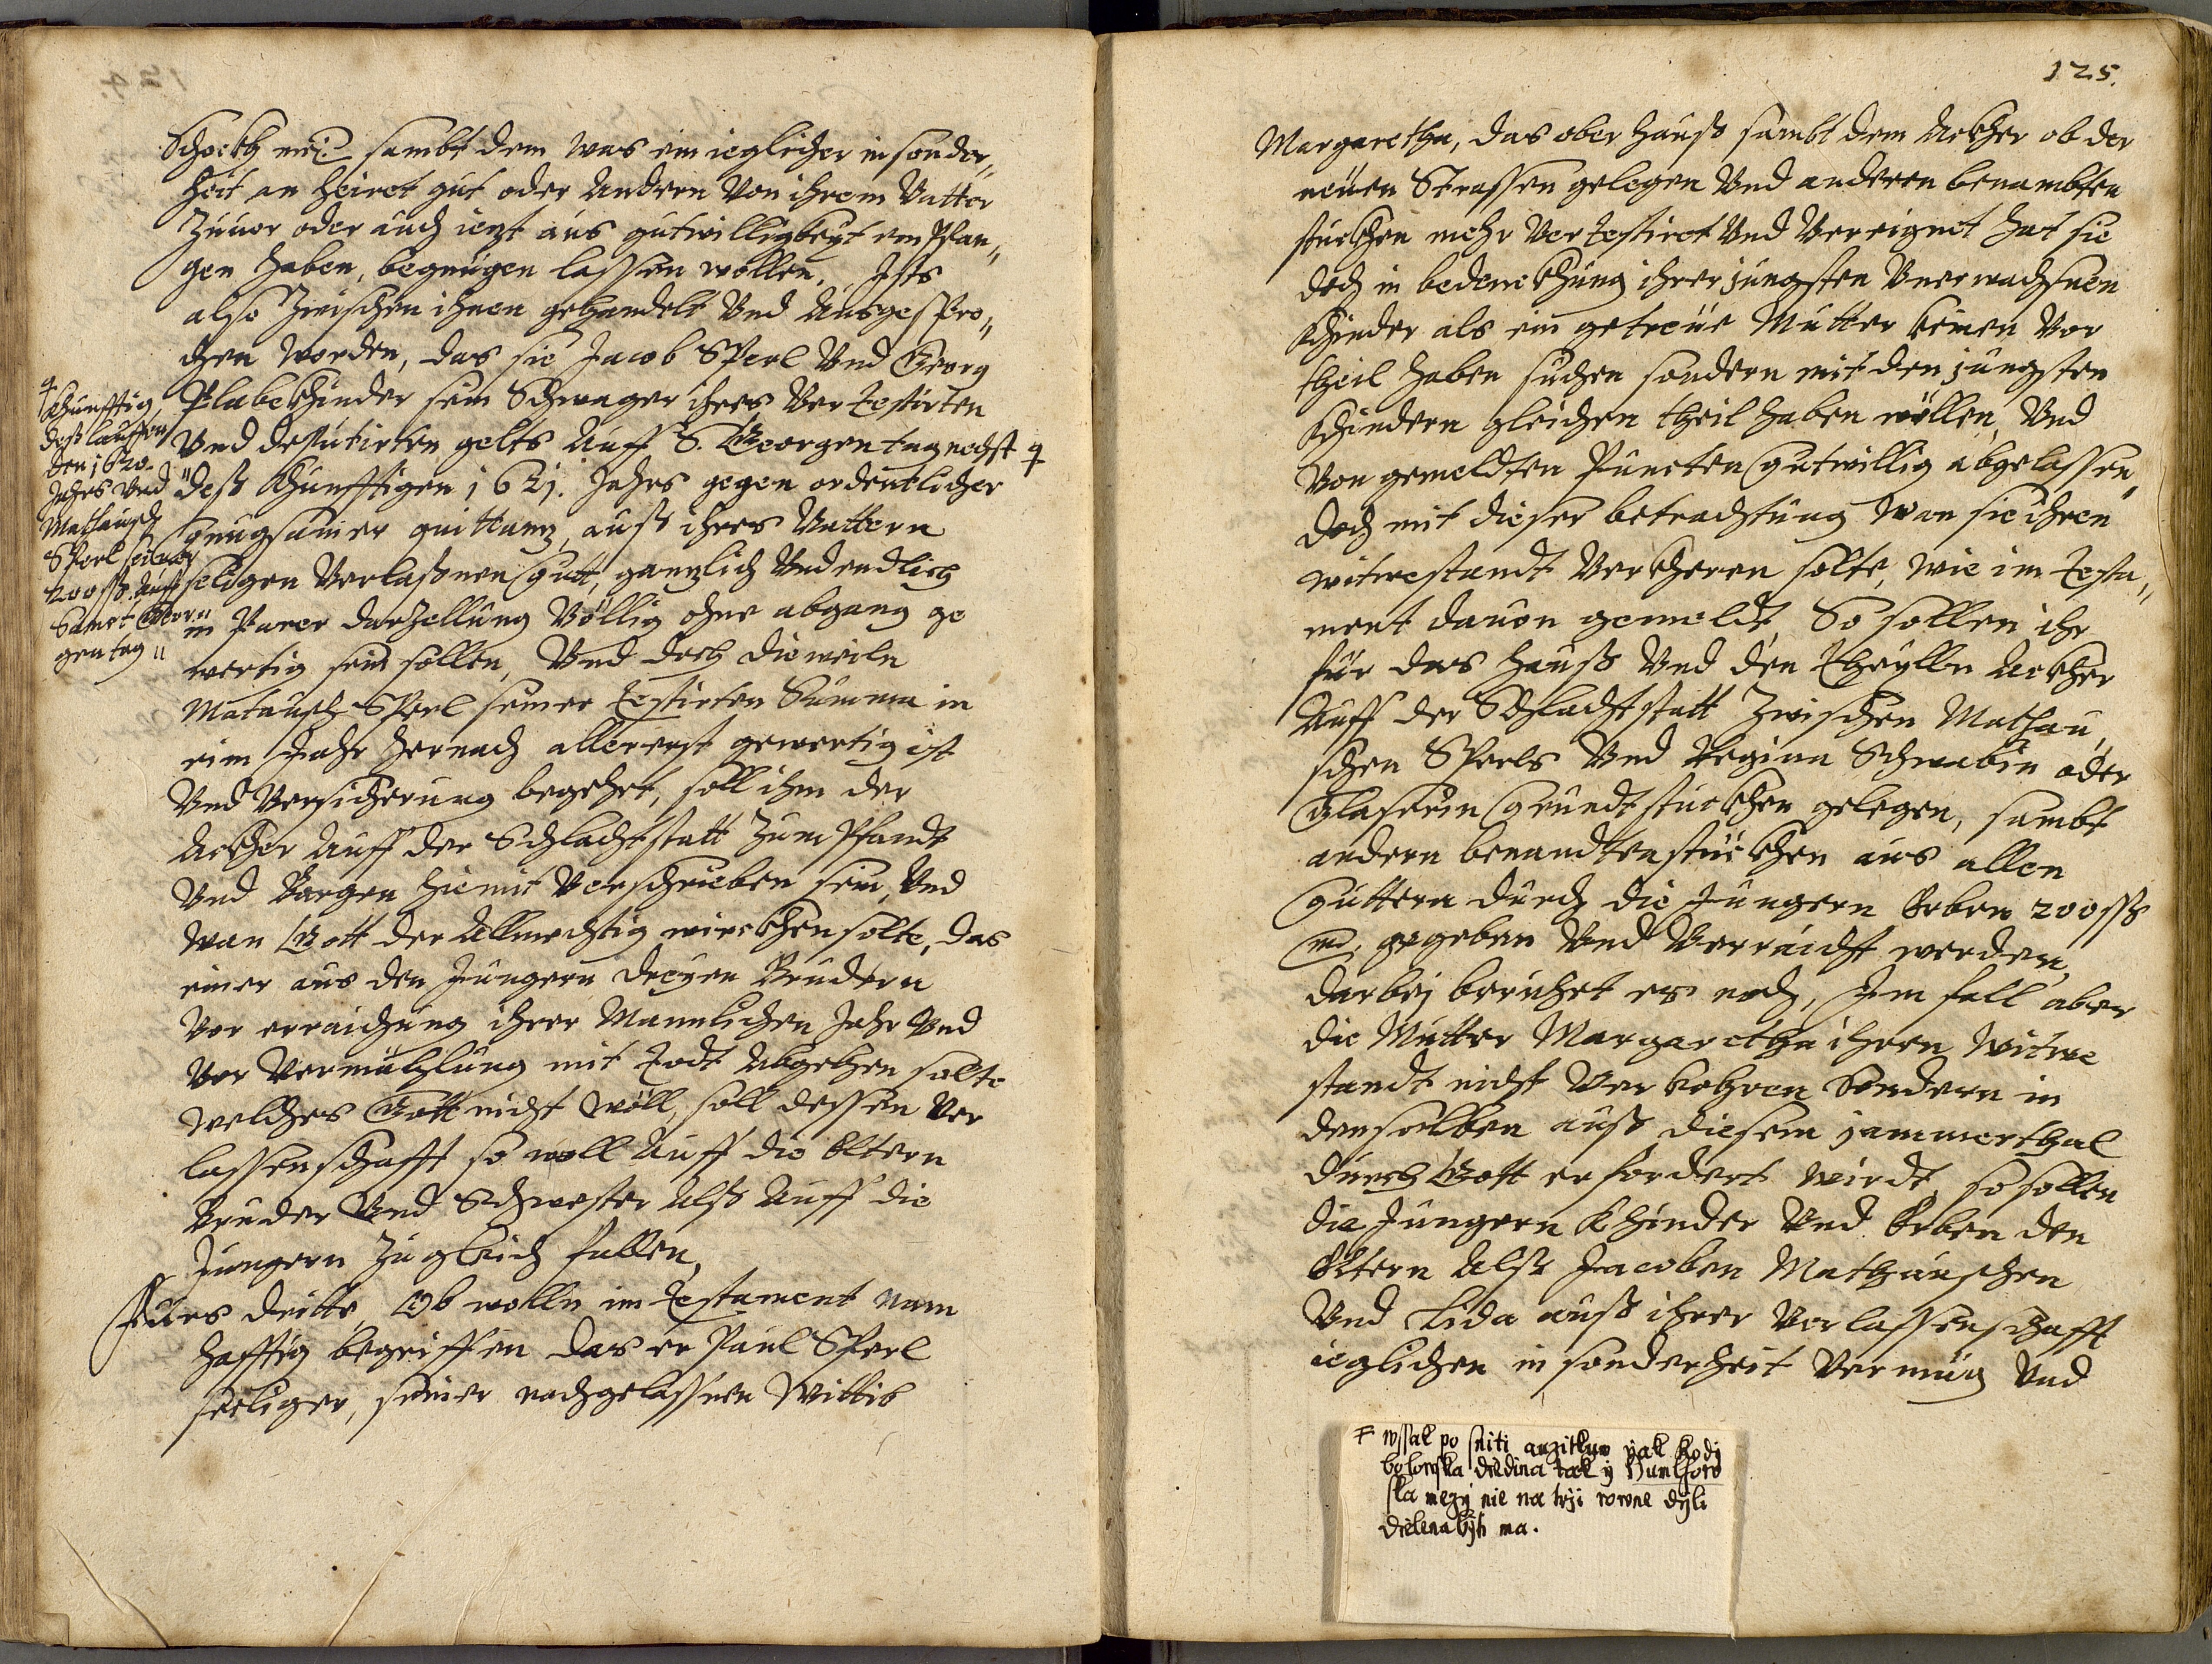 Schockh mei. sambt dem was ein ieglicher in sonder„
heit an heiret gut oder Andern Von ihrem Vatter
Zuuor oder auch iezt aus gutwilligkeyt empfan„
gen haben, begnügen lassen wollen. Ists
also Zwischen ihnen gehandelt Vnd Ausgespro„
chen worden, das sie Jacob Sperl Vnd Georg
Plabekhinder sein Schwager ihres Vertestirten
Vnd deputirten gelts Auff S. Georgen tag nechst
dess Khunfftigen 1621. Jahrs gegen ordentlicher
gnugsamer quittung, auss ihres Vattern
seligen Verlassnen Gutt, ganzlich Vnd endlich
in Parer darzellung Völlig ohne abgang ge
wertig sein sollen, Vnd doch die weiln
Matausch Sperl seiner testirten Summa in
eim Jahr hernach allererst gewertig ist
Vnd Versicherung begehrt, soll ihm der
Ackher Auff der Schlachtstatt Zum Pfandt
Vnd Bürgen hiemit Verschrieben sein, Vnd
wan Gott der Allmechtig wirckhen solte, das
einer aus den Jungern dreyen Brudern
Vor erraichung ihrer Mannlichen Jahr Vnd
Vor Vermählung mit todt Abgehen solte
welches Gott nicht wöll, soll dessen Ver
lassenschafft so woll Auff die Eltern
Bruder Vnd Schwester Alss Auff die
Jungern Zu gleich fallen,
Fürs dritte, Ob wolln im Testament nam
hafftig begriffen das er Paul Sperl
seeliger, seiner nachgelassnen Wittib
Khunfftig,
dess lauffen
den 1620.
Jahrs Vnd
Mathausch
Sperl seiner
200 ss. Auff
Sanct Geor„
gen tag„
125.
Margaretha, das ober hauss sambt dem Ackher ob der
neuen Strassen gelegen Vnd anderen benambsten
stuckhen mehr Vertestiret Vnd Vereignet hat sie
doch in bedenckhung ihrer jungsten Vnerwachsnen
Khinder als ein getreue Mutter keinen Vor
theil haben suchen sondern mit den jungsten
Khindern gleichen theil haben wöllen, Vnd
Von gemeldten Puncten Gutwillig abgelassen,
doch mit dieser betrachtung wan sie ihren
witwestandt Verkheren solte, wie im testa„
ment dauon gemeldt, So sollen ihr
für das hauss Vnd den Ackher
Auff der Schlachtstatt Zwischen Mathau„
schen Sperls Vnd Regina Schwabin oder
Glaserin Grundtstuckhen gelegen, sambt
andern benandten stuckhen aus allen
Guttern durch die Jungern Erben 200 ss
mei. gegeben Vnd Verraicht werden,
darbej beruhet es noch, Im fall aber
die Mutter Margaretha ihren witwe
standt nicht Verkehren Sondern in
denselben auss diesem jammerthal
durch Gott erfordert wirdt, so sollen
die Jungern Khinder Vnd Erben den
Eltern Alss Jacoben Mathauschen
Vnd Lida auss ihrer Verlassenschafft
ieglichen in sonderheit Vermüg Vnd
wssak po sniti auzitkuw yak
diedina tak y
ska mezy nie na trzi rowne dyli
dielena byti ma.